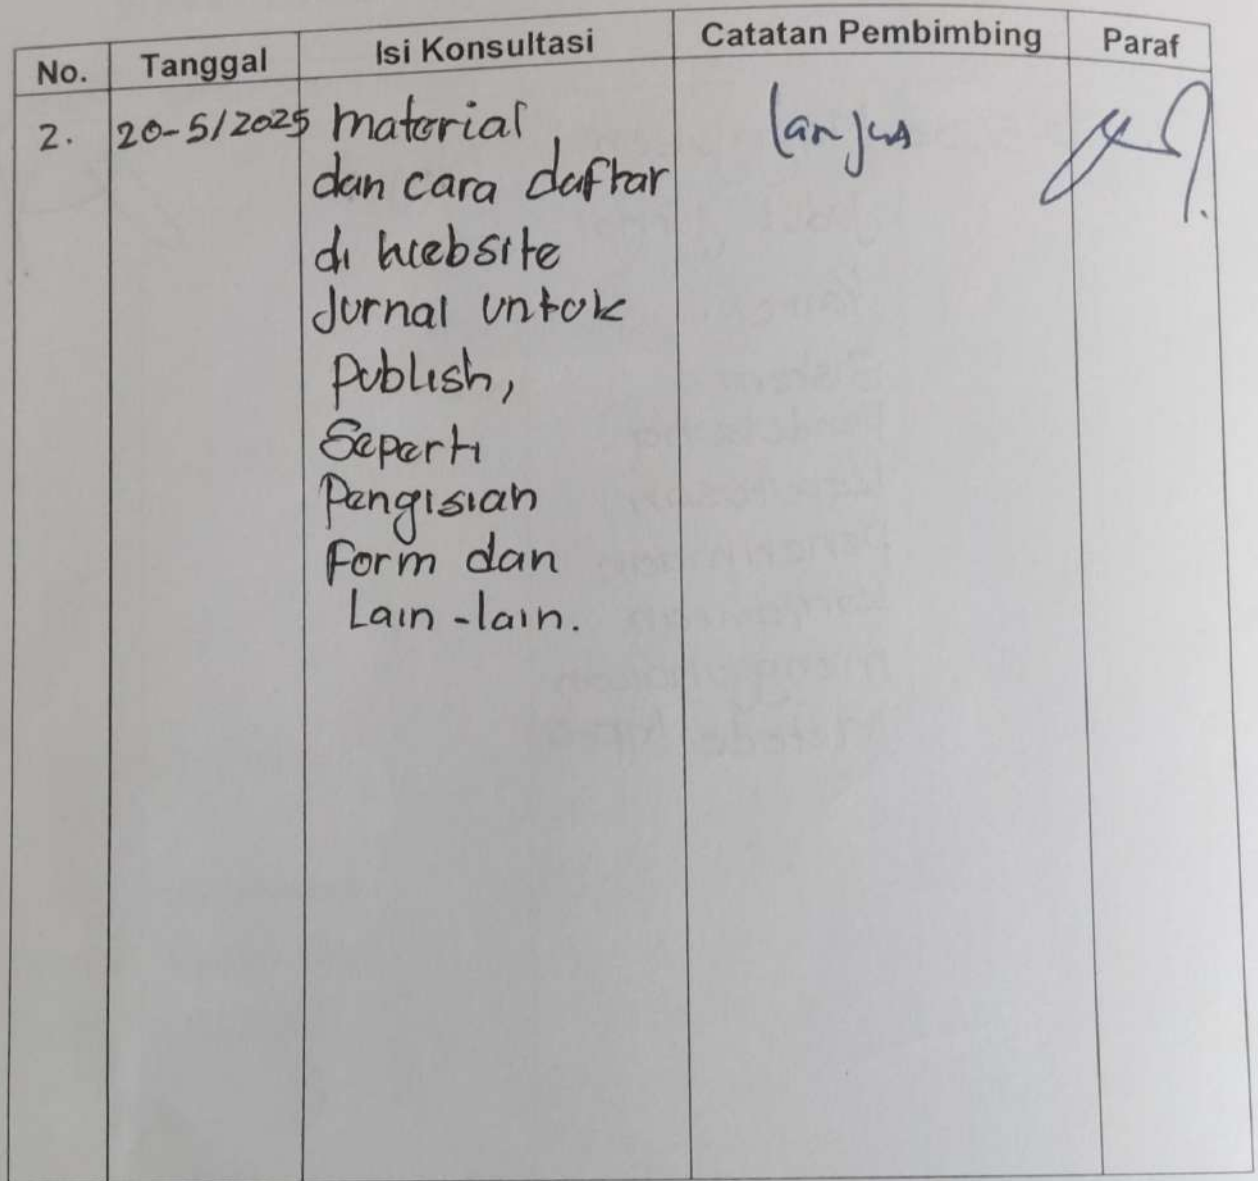 No. Tanggal Isi Konsultasi Catatan Pembimbing Paraf
2. 20-5/2025 material lanjut
dan cara daftar
di website
Jurnal untuk
Publish,
Seperti
Pengisian
Form dan
Lain-lain.